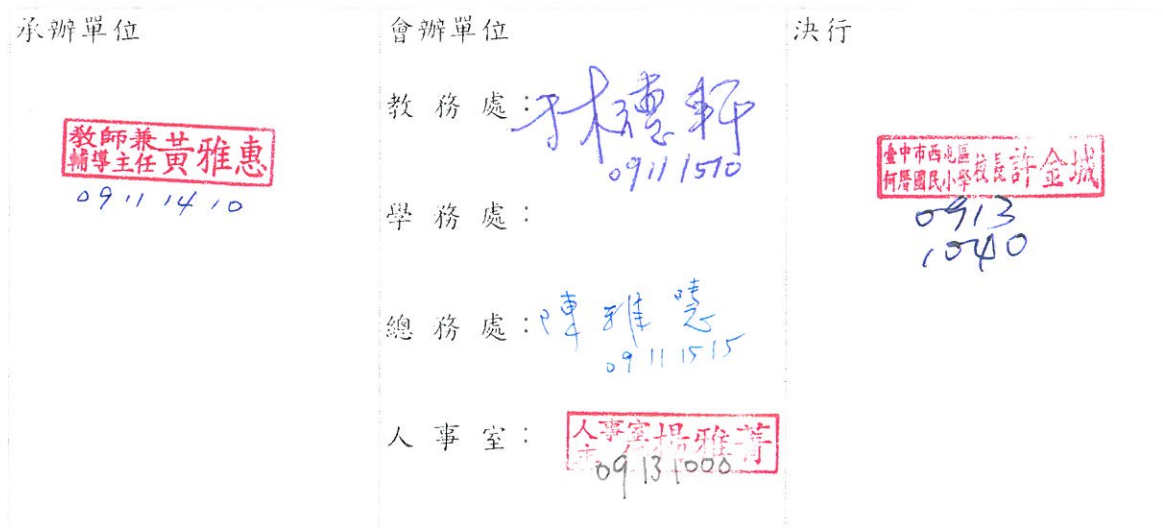 承辦單位
教師兼
輔導主任 黃雅惠
0911 1410
會辦單位
教務處：林德軒
0911 1510
學務處：
總務處：陳雅慧
0911 1515
人事室：人事室
主 楊雅菁
0913 1000
決行
臺中市西屯區
何厝國民小學 校長 許金城
0913
1040